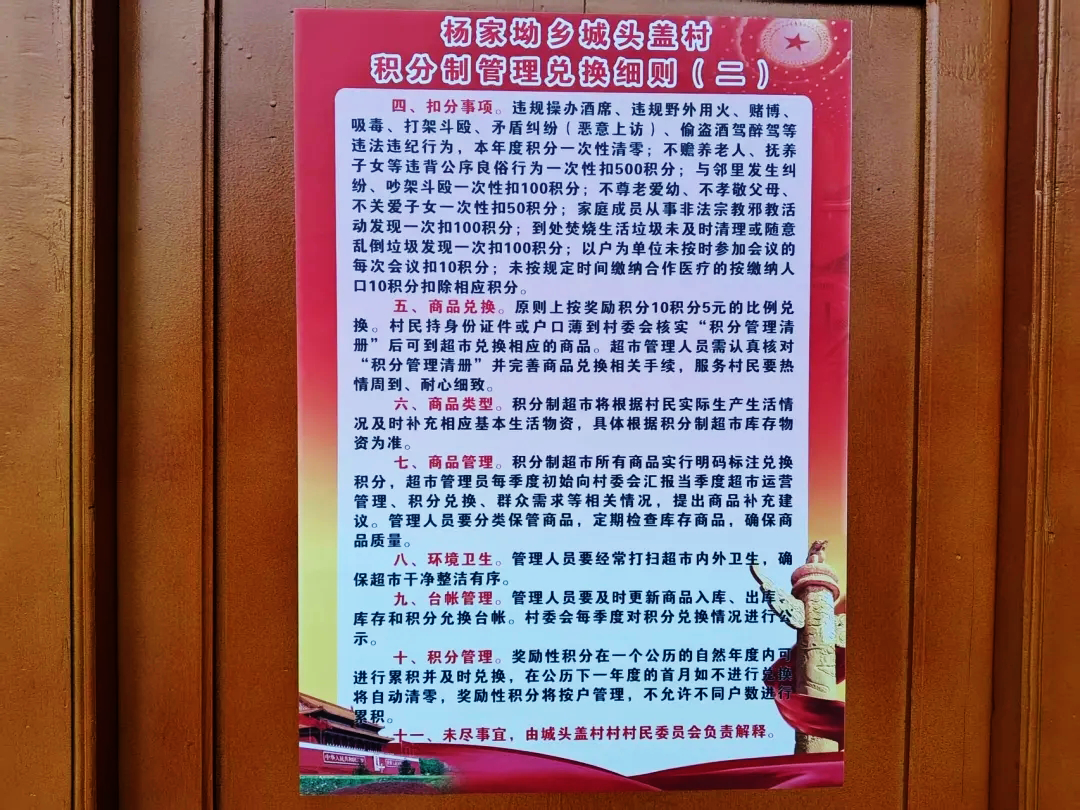 杨家坳乡城头盖村
积分制管理兑换细则（二）
四、扣分事项。违规操办酒席、违规野外用火、赌博、
吸毒、打架斗殴、矛盾纠纷（恶意上访）、偷盗酒驾醉驾等
违法违纪行为，本年度积分一次性清零；不赡养老人、抚养
子女等违背公序良俗行为一次性扣500积分；与邻里发生纠
纷、吵架斗殴一次性扣100积分；不尊老爱幼、不孝敬父母、
不关爱子女一次性扣50积分；家庭成员从事非法宗教邪教活
动发现一次扣100积分；到处焚烧生活垃圾未及时清理或随意
乱倒垃圾发现一次扣100积分；以户为单位未按时参加会议的
每次会议扣10积分；未按规定时间缴纳合作医疗的按缴纳人
口10积分扣除相应积分。
五、商品兑换。原则上按奖励积分10积分5元的比例兑
换。村民持身份证件或户口薄到村委会核实“积分管理清
册”后可到超市兑换相应的商品。超市管理人员需认真核对
“积分管理清册”并完善商品兑换相关手续，服务村民要热
情周到、耐心细致。
六、商品类型。积分制超市将根据村民实际生产生活情
况及时补充相应基本生活物资，具体根据积分制超市库存物
资为准。
七、商品管理。积分制超市所有商品实行明码标注兑换
积分，超市管理员每季度初始向村委会汇报当季度超市运营
管理、积分兑换、群众需求等相关情况，提出商品补充建
议。管理人员要分类保管商品，定期检查库存商品，确保商
品质量。
八、环境卫生。管理人员要经常打扫超市内外卫生，确
保超市干净整洁有序。
九、台帐管理。管理人员要及时更新商品入库、出库、
库存和积分允换台帐。村委会每季度对积分兑换情况进行公
示。
十、积分管理。奖励性积分在一个公历的自然年度内可
进行累积并及时兑换，在公历下一年度的首月如不进行兑换
将自动清零，奖励性积分将按户管理，不允许不同户数进行
累积。
十一、未尽事宜，由城头盖村村村民委员会负责解释。
中华人民共和国